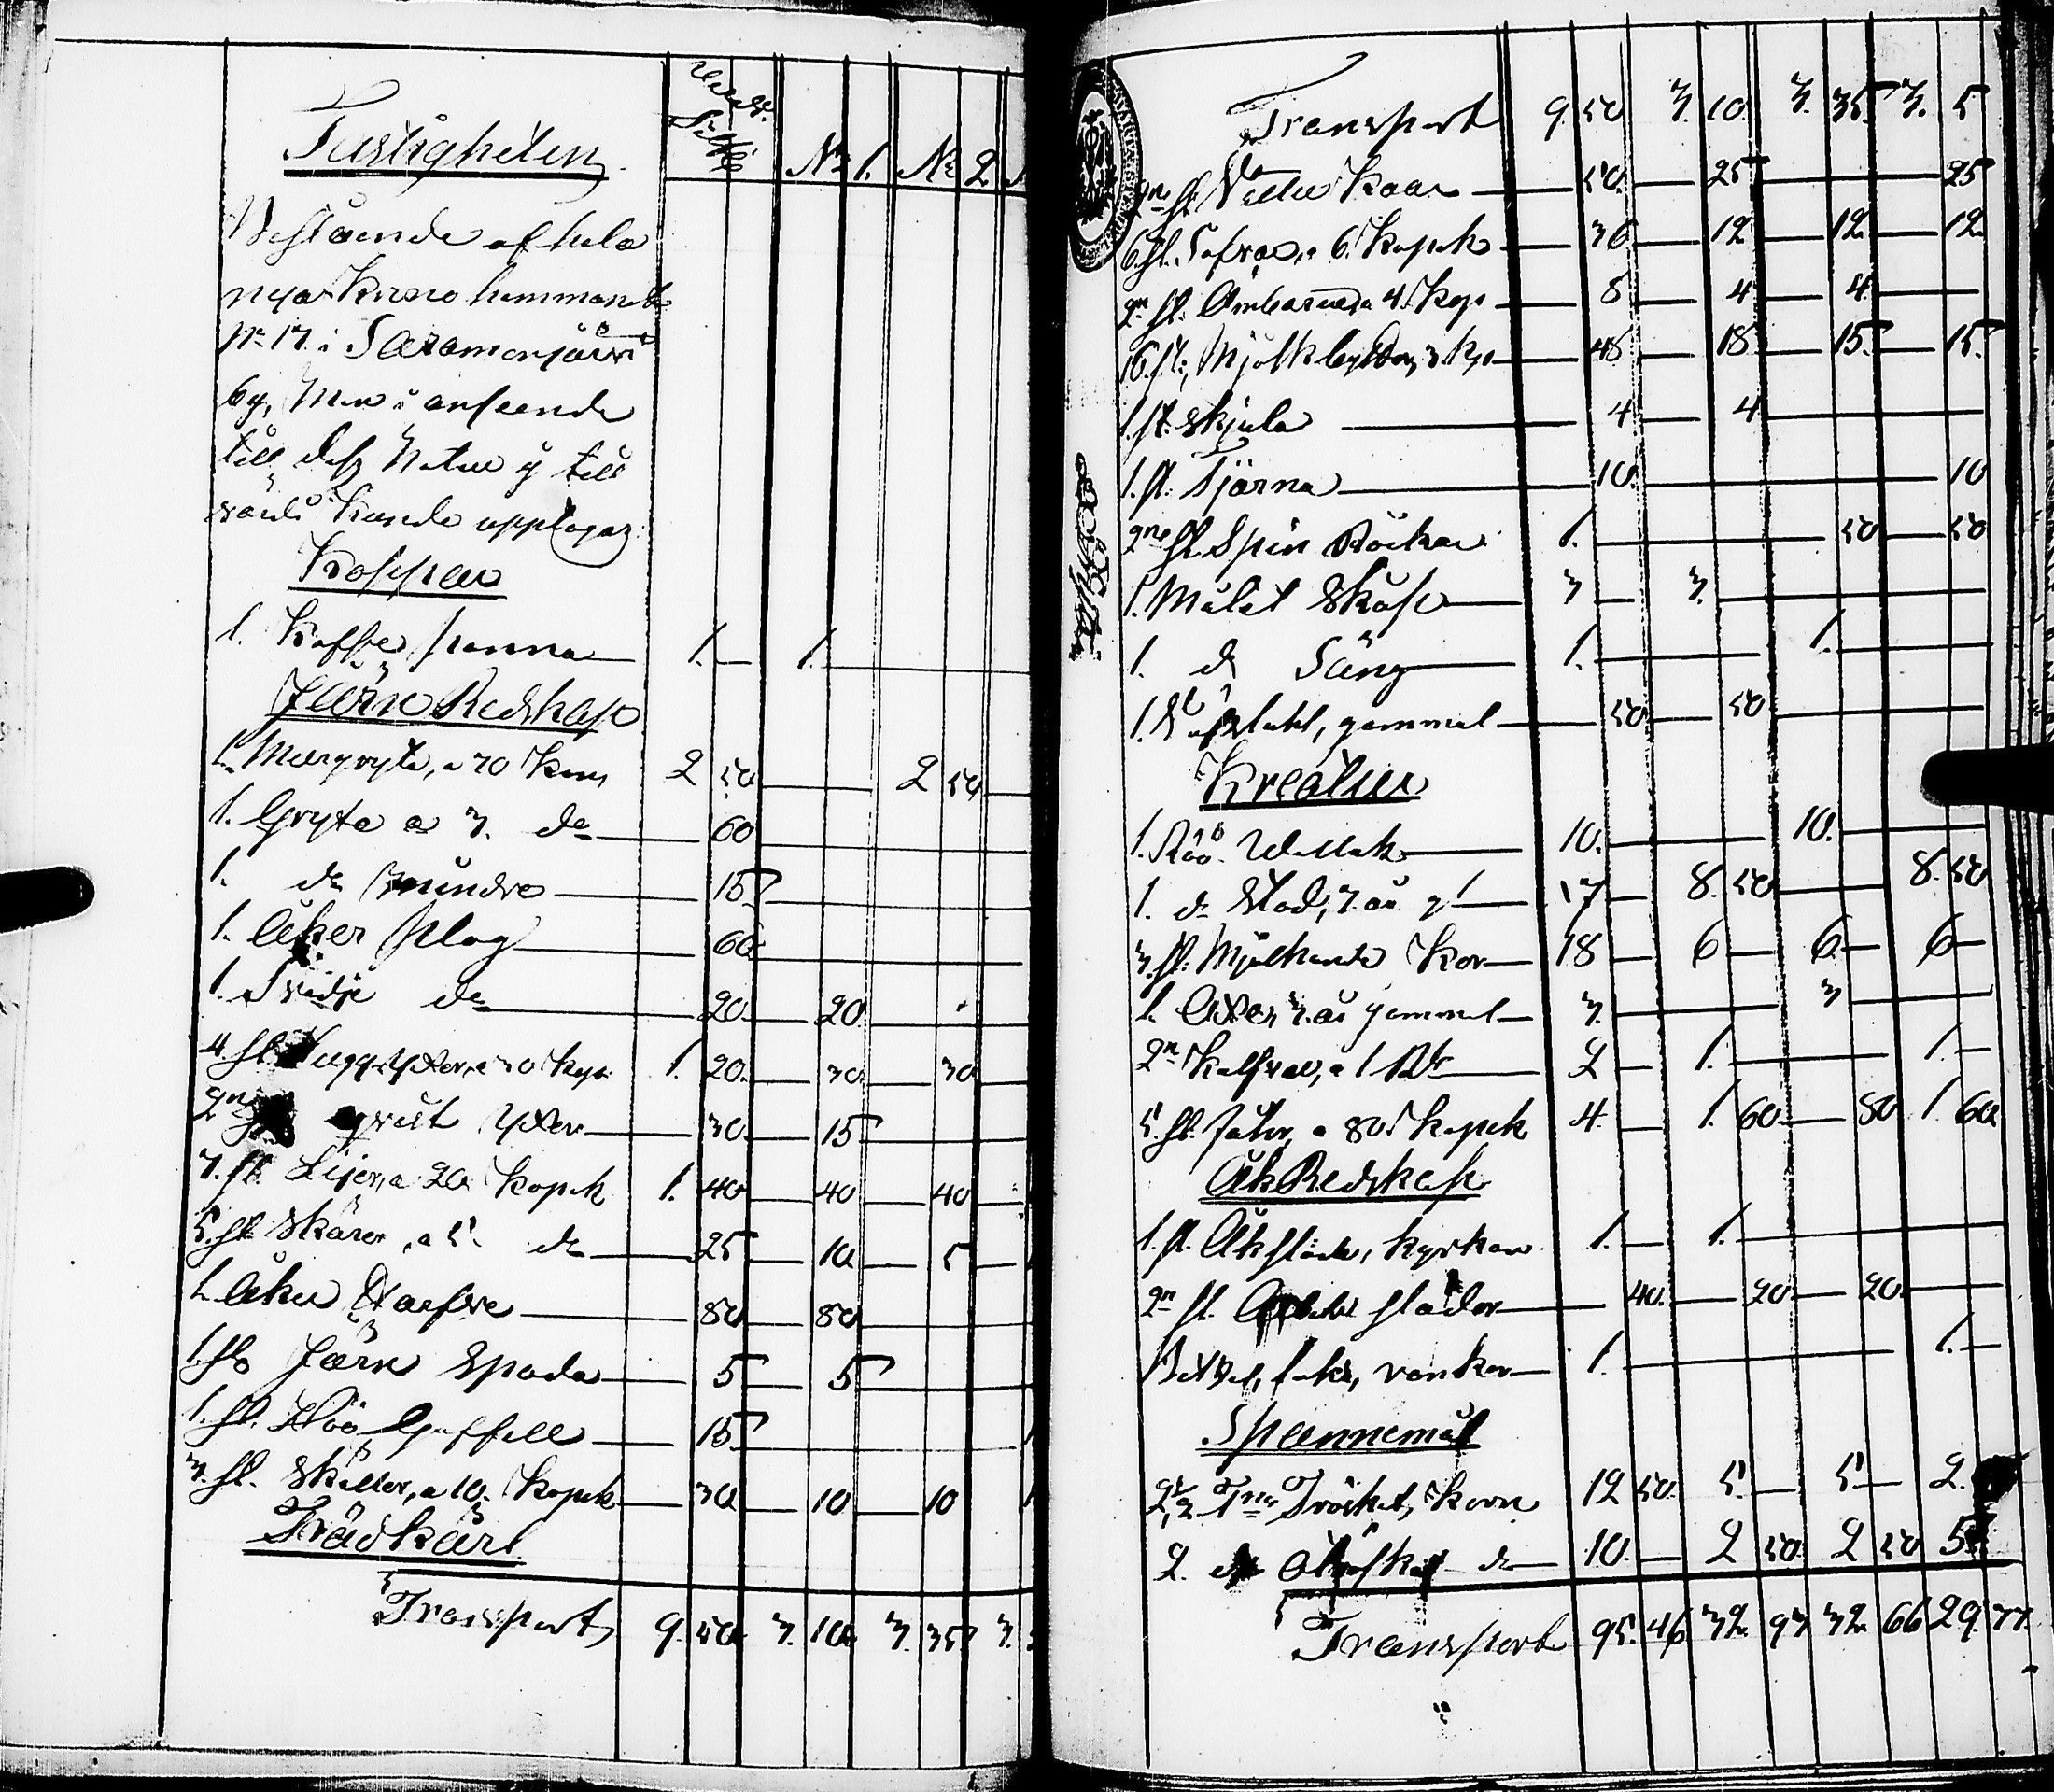 Fastigheten Silfver N: 1. N: 2
Bestående af hela
nya Krono hemmanet
N: 17. i Saramonjärvi
by, Men i anseende
till dess Natur ej till
värde kunde upptagas
Koppar
1. Kaffe panna 1. — 1.
Järn Redskap
1. Murgryta, a 70 Kan 2 50 2 50
1. Gryta a 3. do 60
1. do mindre 15
1. Åker plog 60
1. Svidje do 20 20
4. st. Huggyxor, a 30 Kop. 1. 20 30 30
2ne qvist yxor 30 15
7. st. Lijor, a 20 Kopek 1. 40 40 40
5. st. Skäror, a 5. do 25 10 5
1. Åker Harfve 80 80
1. st. Järn Spada 5 5
1. st. Höö Gaffell 15
3. st. Skällor, a 10. Kopek 30 10 10
Trädkäril
Transport 9. 50 3. 10 3. 35 3.
Transport 9. 50 3. 10 3. 35 3. 5
2ne st. Kaar 50 25 25
6. st. Såfvar, a 6. Kopek 36 12 12 12
2n st. Ämbaren a 4. Kop 8 4 4
16. st. Mjölkbyttor, 3 Kp 48 18 15 15
1. st. Skjula 4 4
1. st. Tjärna 10 10
2ne st. Spin Råckar 1. 50 50
1. Målat Skåp 3 3.
1. do Säng 1. 1.
1. gammal 50 50
Kreatur
1. Röö Wallak 10. 10.
1. do Stod, 7. år gl 17 8. 50 8. 50
3. st. Mjölkande Kor 18 6 6 6
1. Oxe 3. år gammal 3. 3
2n Kalfvar, a 1 Rb 2 1. 1.
5. st. Fåhr, a 80. Kopek 4. 1. 60 80 1. 60
Åk Redskap
1. st. Åksläde, kyrkan 1. 1.
2n st. slädor 40. 20 20
1. 1.
Spannemål
2 1/2 Tnr Tröskat, Korn 12 50 5. 5 2.
2. do do 10. 2 50 2 50 5
Transport 95. 46 32. 93 32. 66 29. 77.